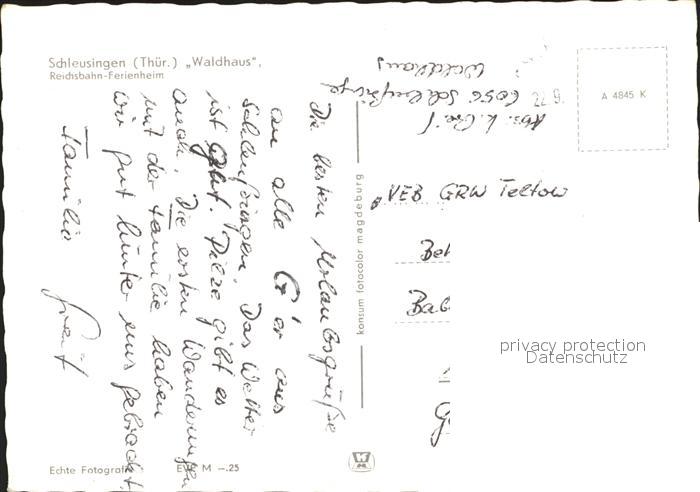 Schleusingen (Thür.) „Waldhaus",
Reichsbahn-Ferienheim
Die besten Urlaubsgrüße
an alle G'er aus
Schleusingen. Das Wetter
ist gut. Pilze gibt es
auch. Die ersten Wanderungen
mit der Familie haben
wir gut hinter uns gebracht.
Familie Greif
Echte Fotografie
EVP M –.25
konsum fotocolor magdeburg
Abs. K. Greif
6056 Schleusingen
Waldhaus
A 4845 K
VEB GRW Teltow
Bet
Bab
G
privacy protection
Datenschutz